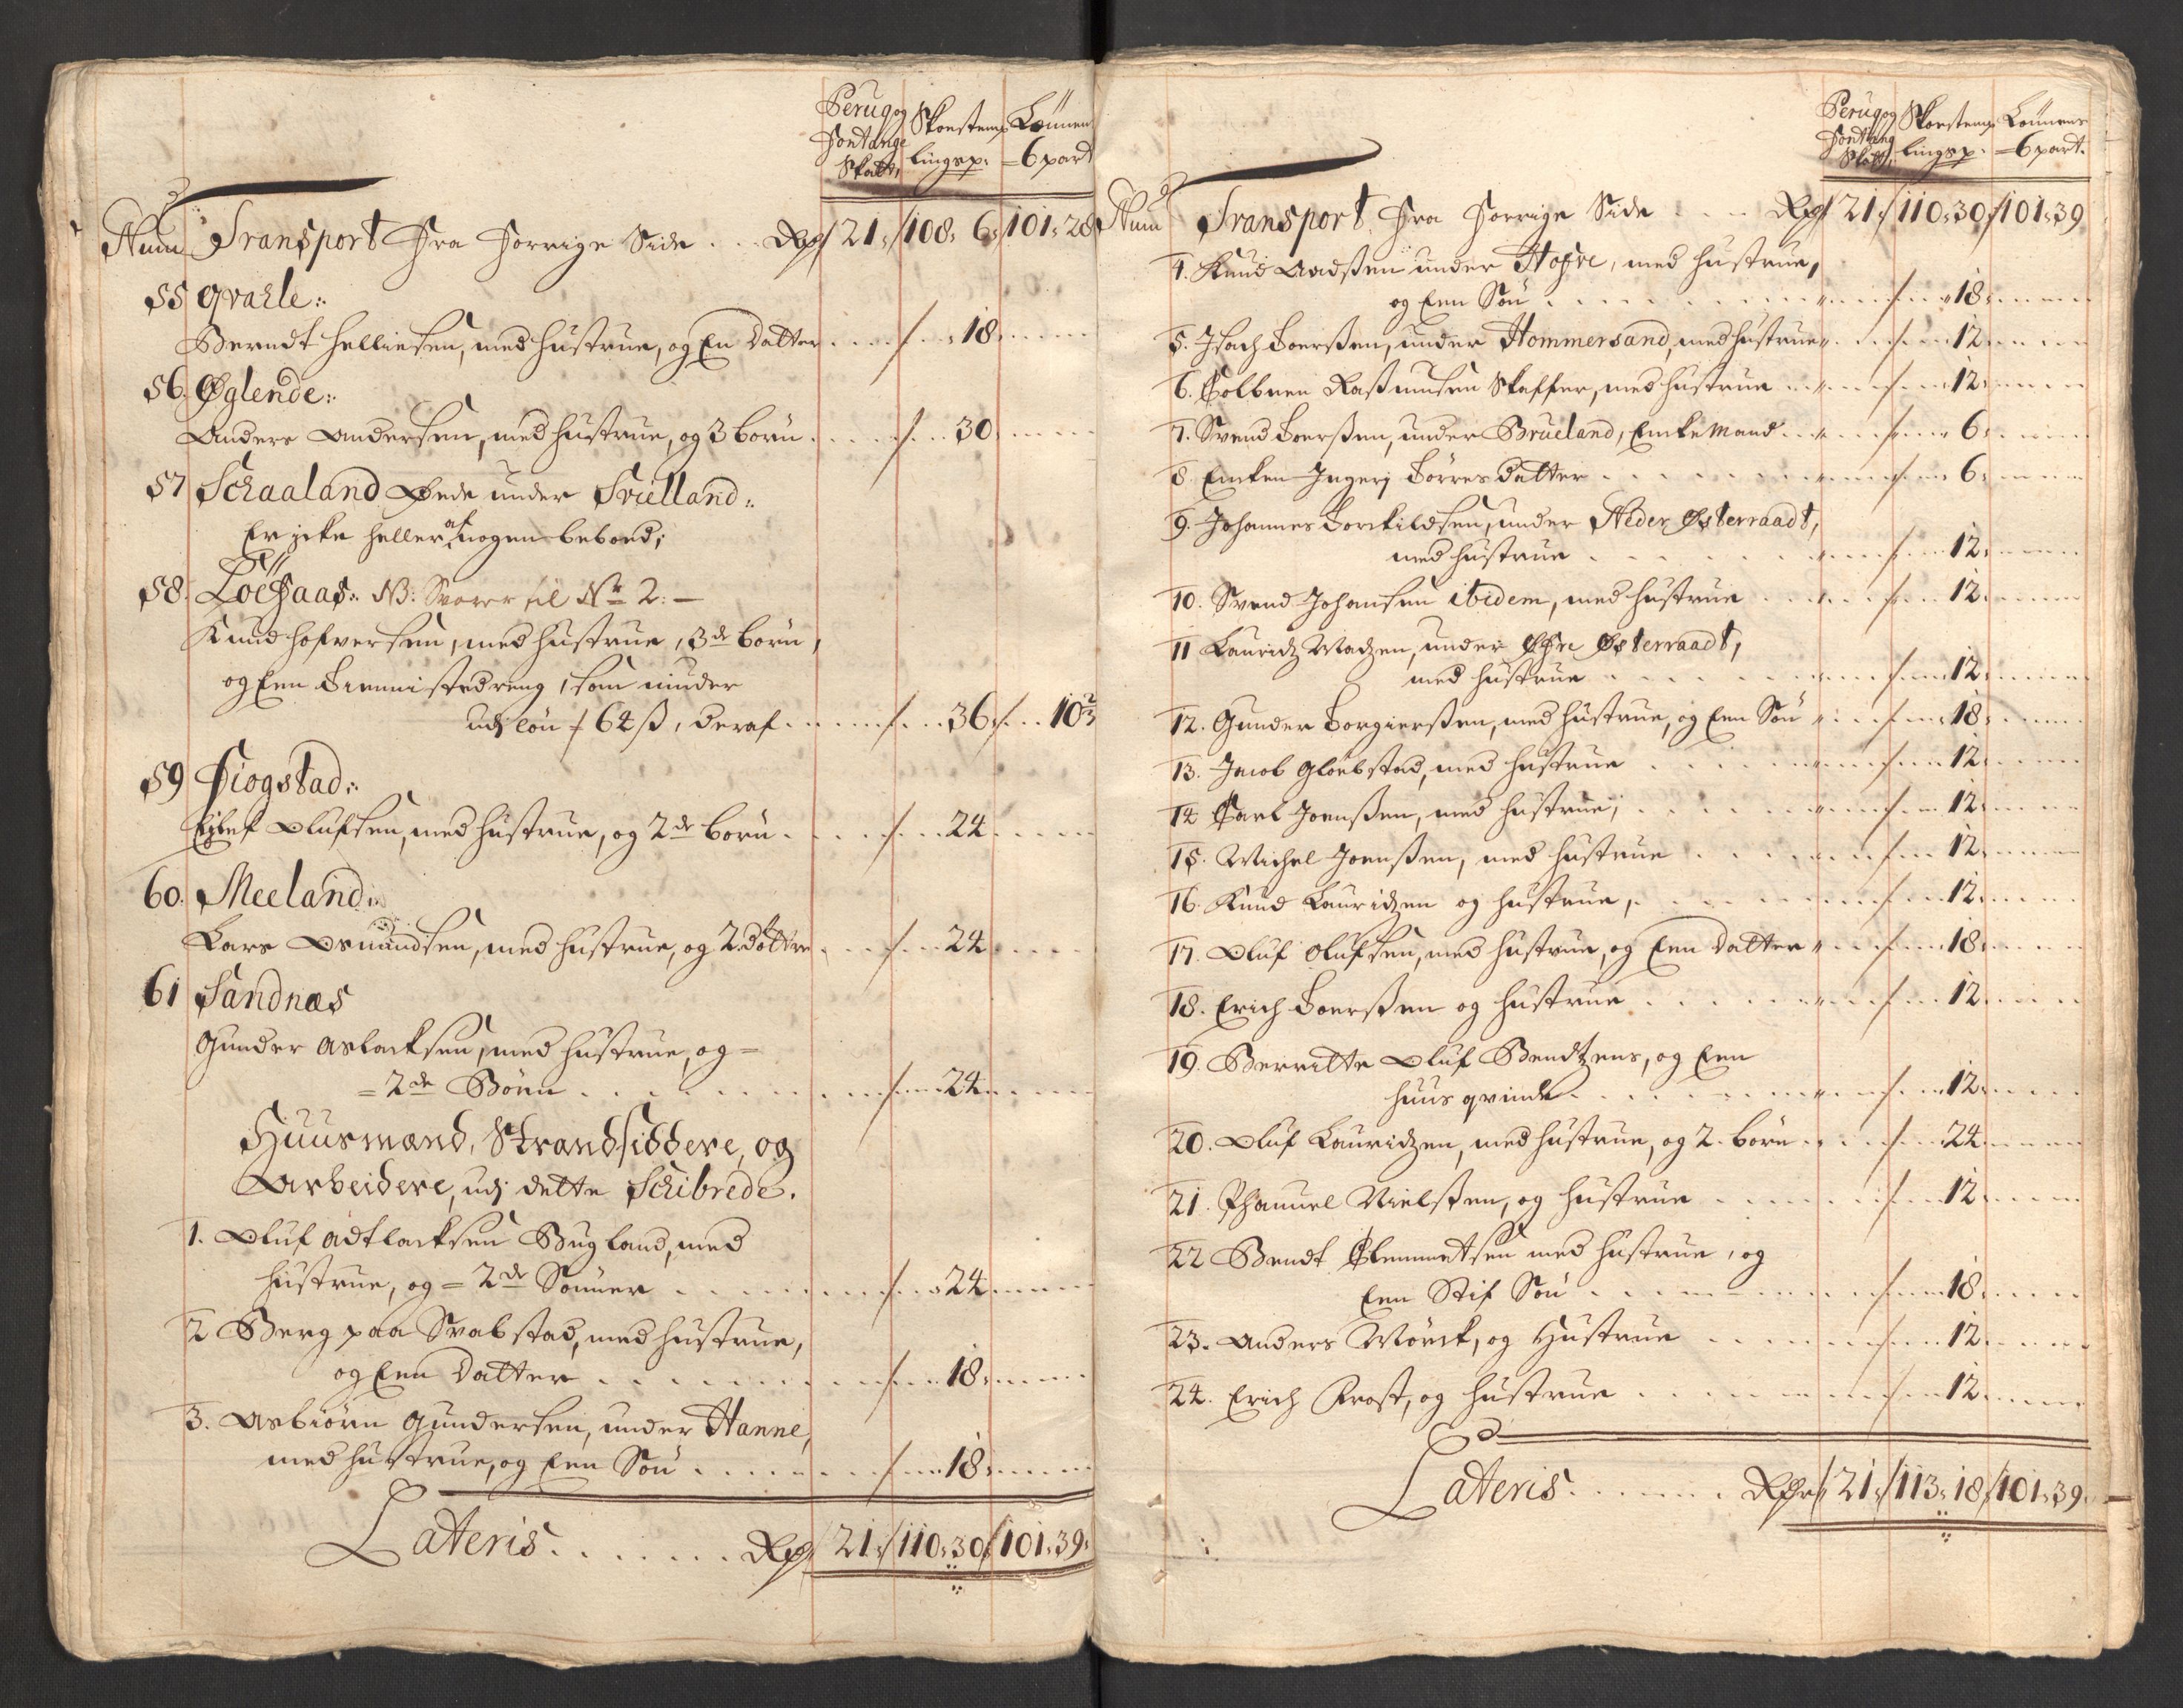 Perug og
Fontange
Skatt,
Skoesteng
lingsp.
Lønnen
=6 part
Num Transport Fra Forrige Side . . Rdr 21:/108: 6:/101: 28
55 Qvahle:
Berndt Helliesen, med hustrue, og En datter . . . 18
56. Øglende:
Anders Andersen, med hustrue, og 3 børn . . . 30
57 Schaaland Øede under Svielland:
Er icke heller af nogen beboed;
58. Løesaas: NB: Svarer til No 2: —
Knud hofversen, med hustrue, 3de børn,
og Een Tiennistedreng, som niuder
udj løn / 64 ß, deraf . . . 36 . . 10 2/3
59 Fiogstad:
Ejlef Olufsen, med hustrue, og 2de børn . . . 24
60. Meeland:
Lars Osmundsen, med hustrue, og 2 døttre . . . 24
61 Sandnæs
Gunder Aslacksen, med hustrue, og =
= 2de Børn . . . 24
Huusmænd, Strandsiddere, og
Arbeidere, udj dette Schibrede.
1. Oluf Adtlacksen Bugland, med
hustrue, og = 2de Sønner . . . 24
2 Berg paa Svabstad, med hustrue,
og Een Datter . . . 18
3. Asbiørn Gundersen, under Hanne,
med hustrue, og Een Søn . . . 18
Lateris . . . Rdr 21:/110: 30/101: 39:
Perug og
Fontang
Skatt,
Skoesteng
lingsp.
Lønnens
=6 part.
Num Transport Fra Forrige Side . . . Rdr 21:/110: 30/101: 39
4. Knud Aadsen under Hofve, med hustrue,
og Een Søn . . . 18
5. Isach Toersen, under Hommersand, med hustrue . . . 12
6. Colbeen Rasmusen Skaffer, med hustrue . . . 12
7. Svend Toersen, under Brueland, Encke Mand . . . 6
8. Encken Ingerj Børresdatter . . . 6
9. Johannes Torckildsen, under Neder Østerraadt,
med hustrue . . . 12
10. Svend Johansen ibidem, med hustrue . . . 12
11 Lauridz Madzen, under Øfre Østerraadt,
med hustrue . . . 12
12. Gunder Torgiersen, med hustrue, og Een Søn . . . 18
13. Jacob Gloebstad, med hustrue . . . 12
14 Carl Joensen, med hustrue, . . . 12
15. Michel Joensen, med hustrue . . . 12
16. Knud Lauridzen og hustrue, . . . 12
17. Oluf Olufsen, med hustrue, og Een datter . . . 18
18. Erich Toersen og hustrue . . . 12
19. Berritte Oluf Bendtzens, og Een
huus qvinde . . . 12
20. Oluf Lauridzen, med hustrue, og 2 børn . . . 24
21. Phanuel Nielsen, og hustrue . . . 12
22 Bendt Clemmetsen med hustrue, og
Een Stif Søn . . . 18
23. Anders Mørck, og Hustrue . . . 12
24. Erich Krost, og hustrue . . . 12
Lateris . . . Rdr 21:/113: 18/101: 39: